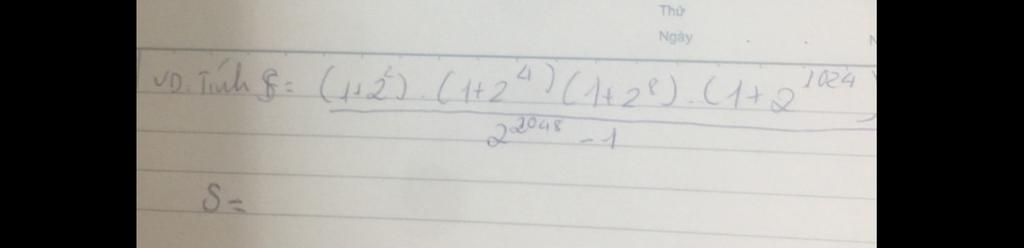 Thứ
Ngày
VD. Tính S = (1+2²).(1+2⁴)(1+2⁸).(1+2¹⁰²⁴)
2²⁰⁴⁸ - 1
S =